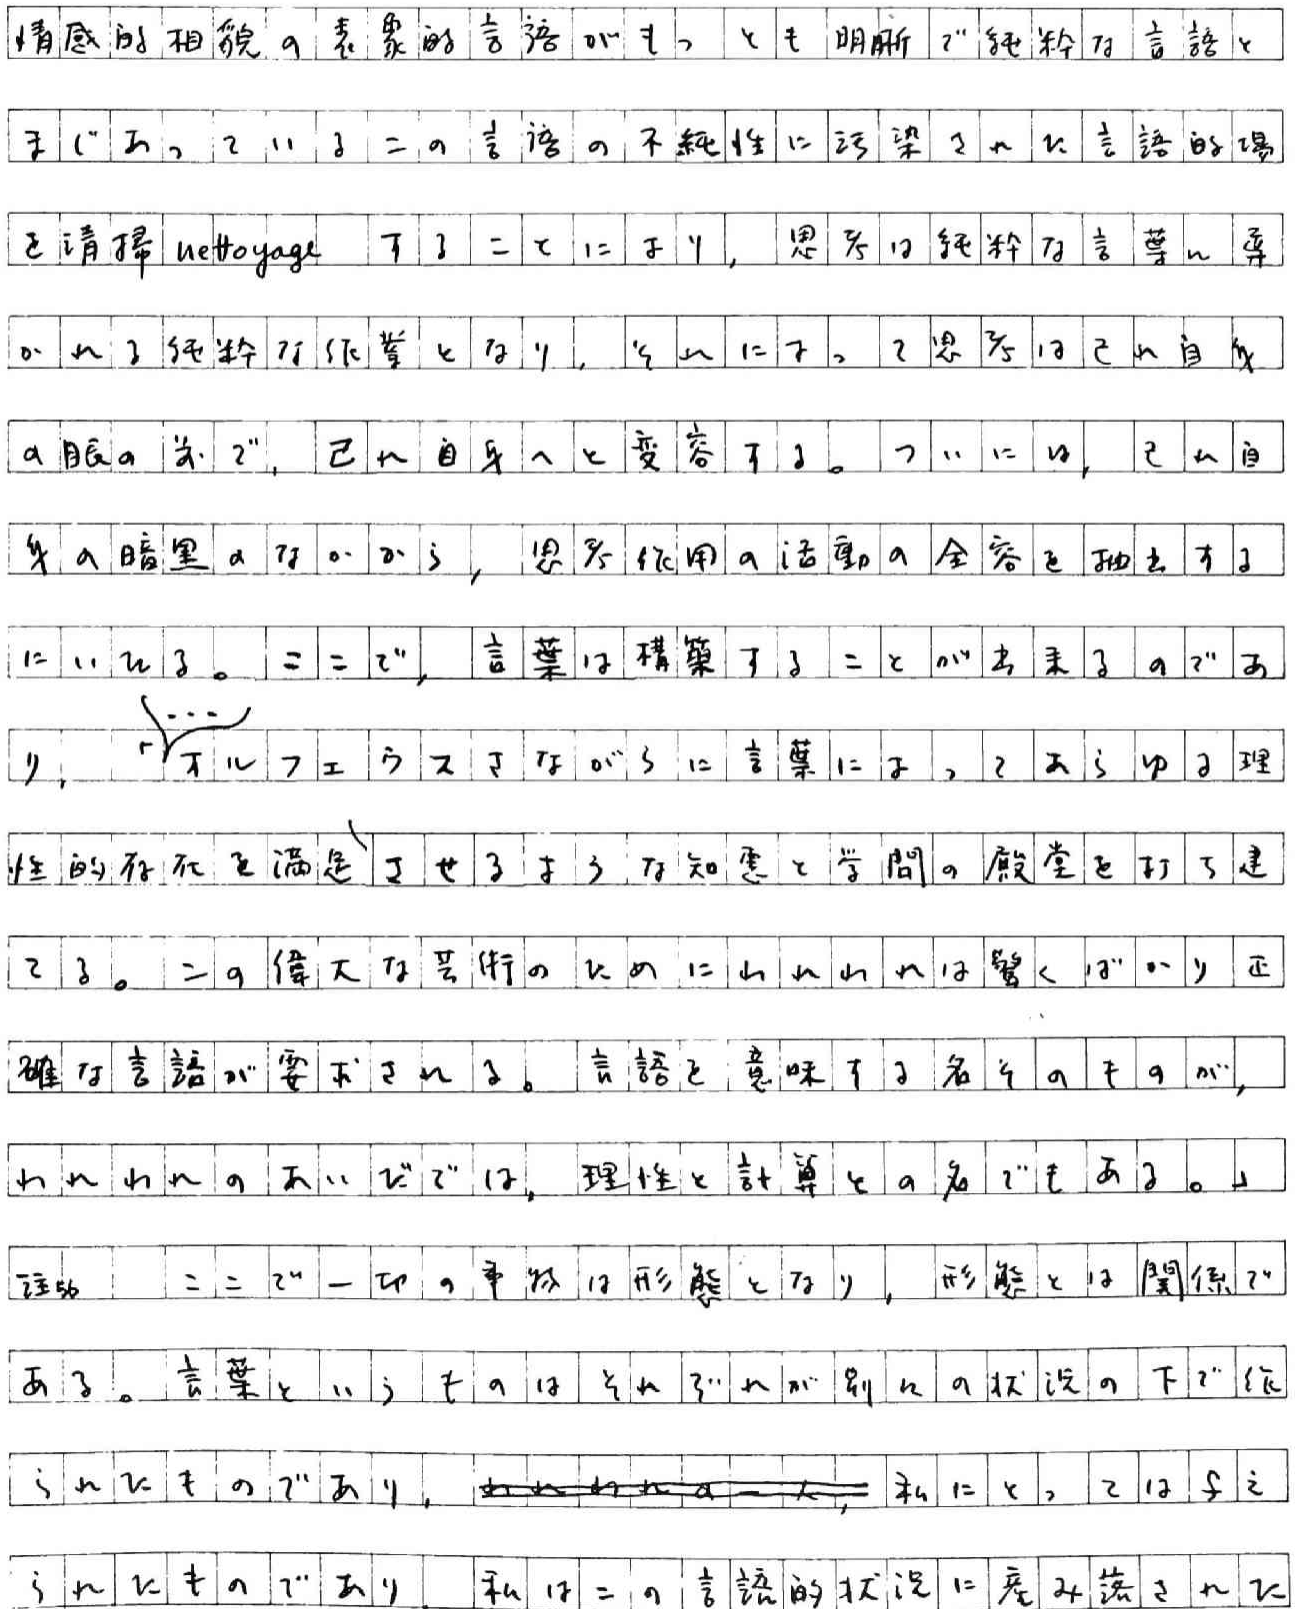 情感的相貌の表象的言語がもっとも明晰で純粋な言語と
まじあっているこの言語の不純性に汚染された言語的場
を清掃 nettoyage することにより, 思考は純粋な言葉に導
かれる純粋な作業となり, それによって思考は己れ自身
の眼の前で, 己れ自身へと変容する。ついには, 己れ自
身の暗黒のなかから, 思考作用の活動の全容を抽出する
にいたる。ここで, 言葉は構築することが出来るのであ
り, 「…オルフェウスさながらに言葉によってあらゆる理
性的存在を満足させるような知恵と学問の殿堂を打ち建
てる。この偉大な芸術のためにわれわれは驚くばかり正
確な言語が要求される。言語を意味する名そのものが,
われわれのあいだでは, 理性と計算との名でもある。」
註56 ここで一切の事物は形態となり, 形態とは関係で
ある。言葉というものはそれぞれが別々の状況の下で作
られたものであり, われわれの一人, 私にとっては与え
られたものであり 私はこの言語的状況に産み落された